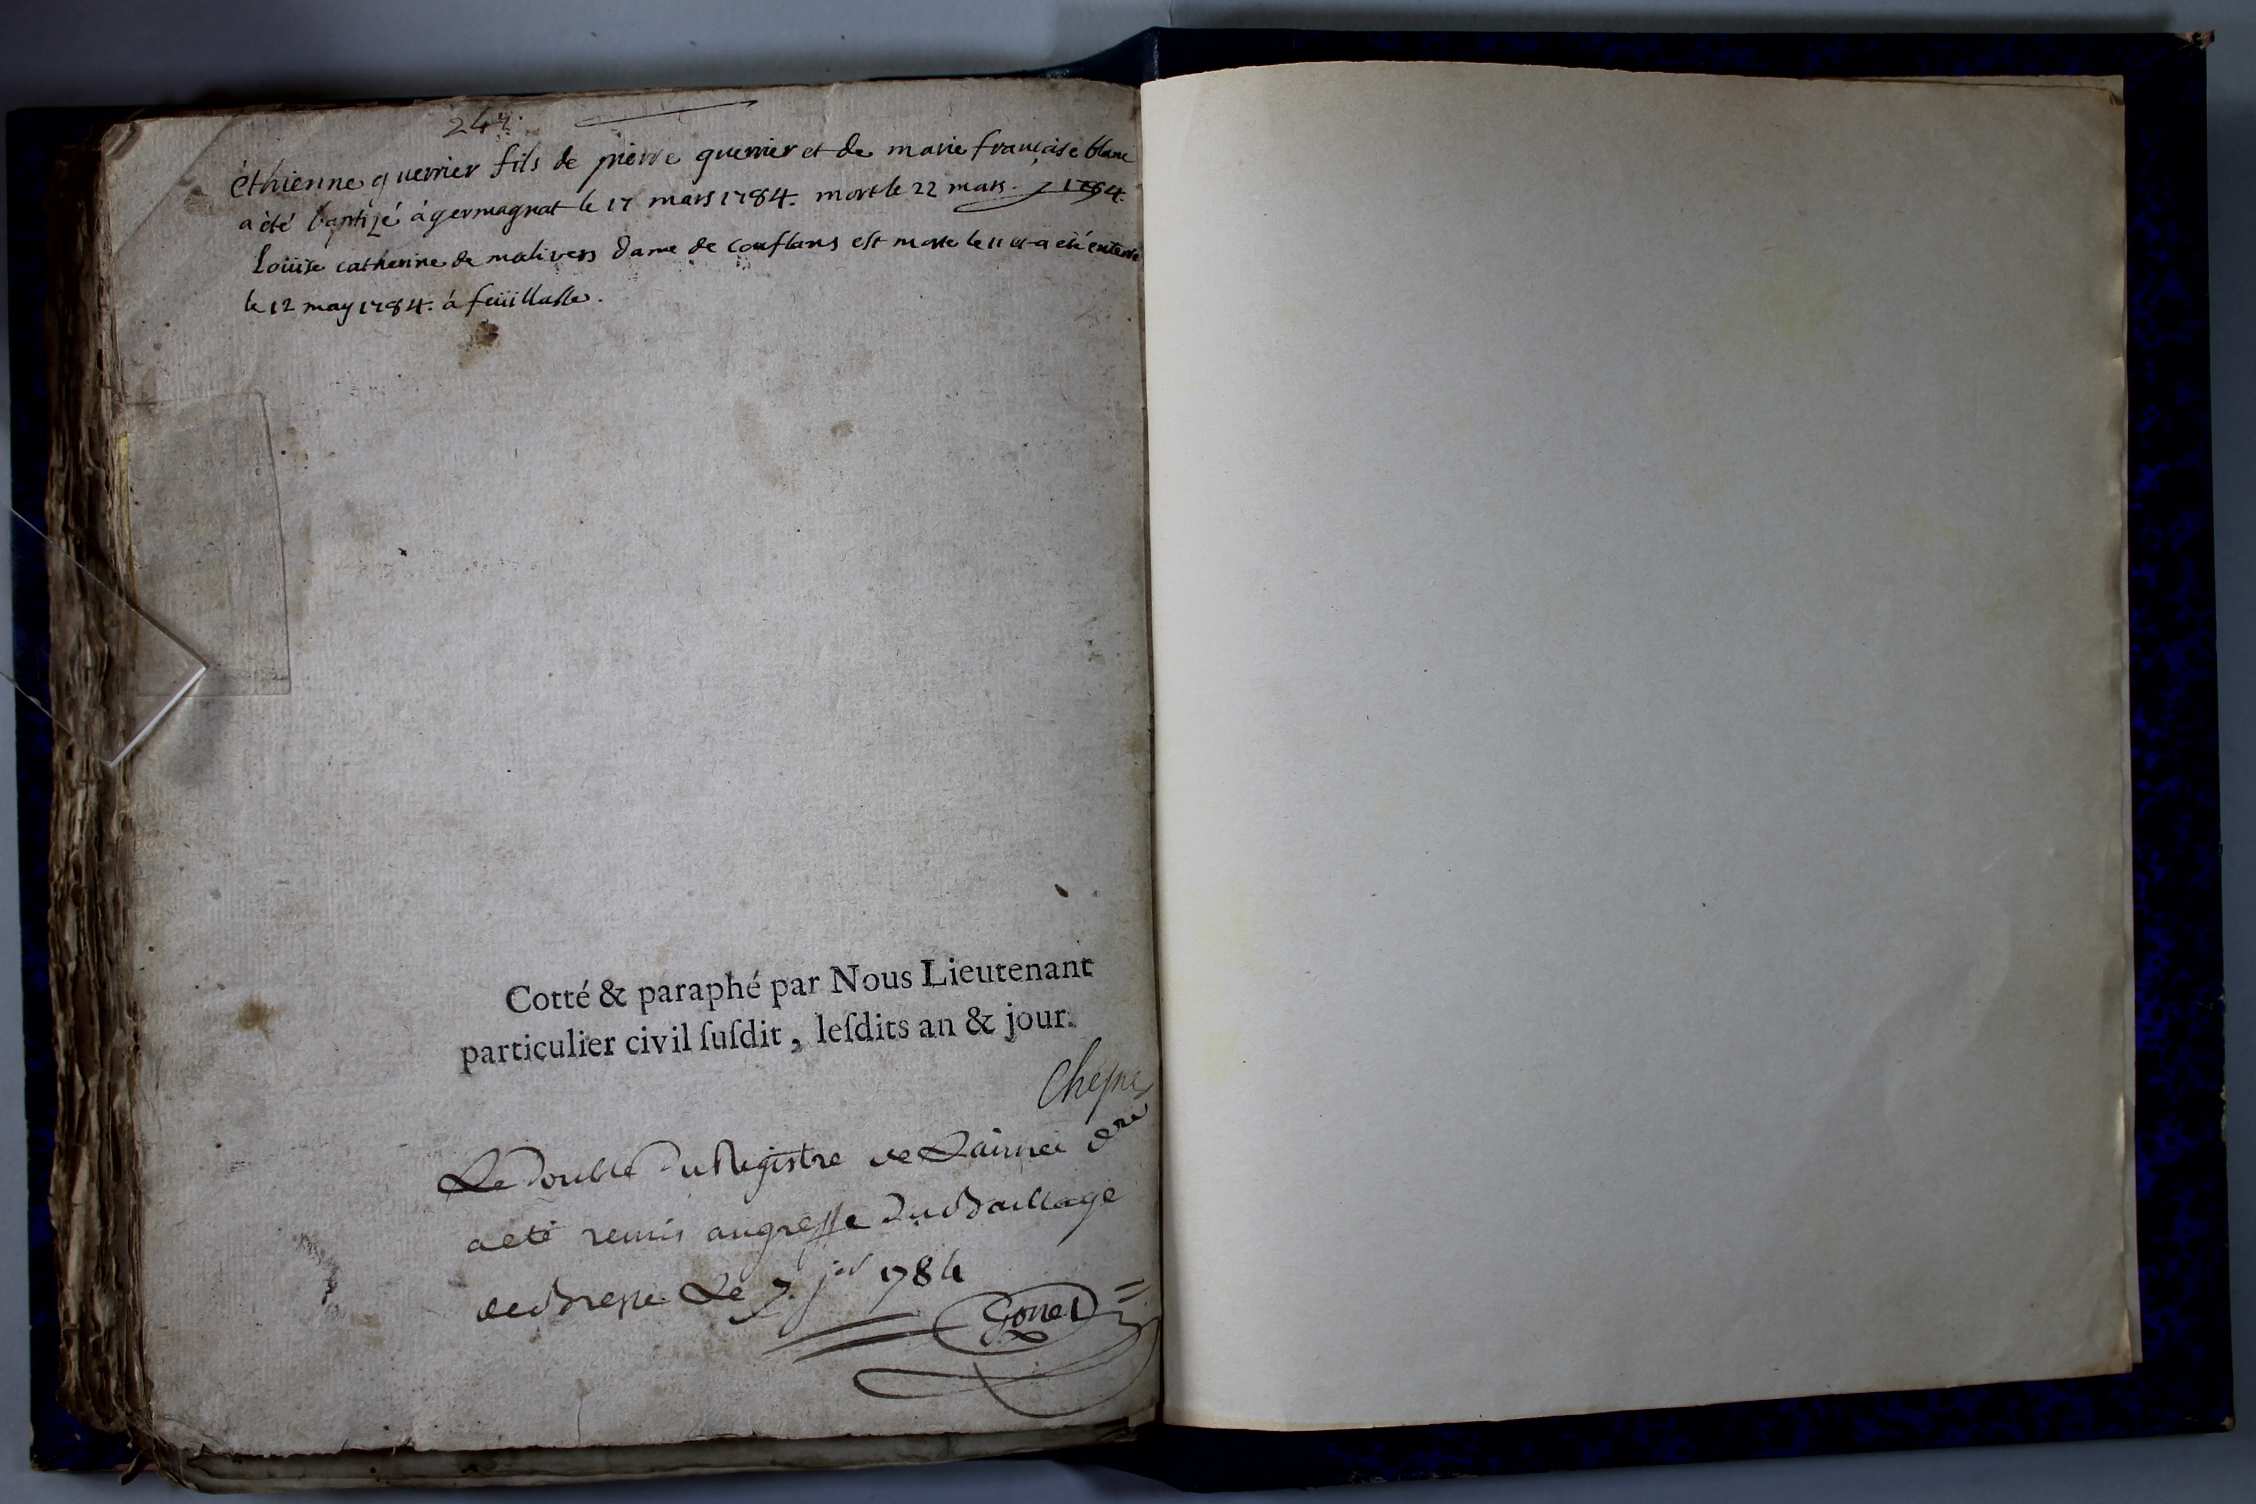 244.
éthienne guerrier fils de pierre guerrier et de marie française blanc
a été baptizé à germagnat le 17 mars 1784. mort le 22 mars 1784.
Loüise catherine de malivers dame de conflans est morte le 11 et a été enterré
le 12 may 1784. à feüillasse.
Cotté & paraphé par Nous Lieutenant
particulier civil ſuſdit, leſdits an & jour.
Chesne
Le double du Registre de L'année dre
a été remis au greffe du Baillage
de Bresse Le 7 jer 1784